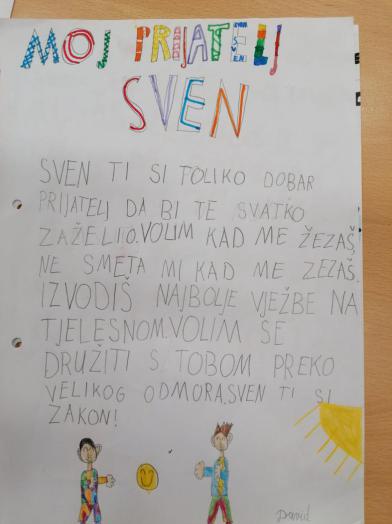 MOJ PRIJATELJ
SVEN
SVEN TI SI TOLIKO DOBAR
PRIJATELJ DA BI TE SVATKO
ZAŽELIO.VOLIM KAD ME ŽEZAŠ,
NE SMETA MI KAD ME ZEZAŠ.
IZVODIŠ NAJBOLJE VJEŽBE NA
TJELESNOM.VOLIM SE
DRUŽITI S TOBOM PREKO
VELIKOG ODMORA.SVEN TI SI
ZAKON!
David